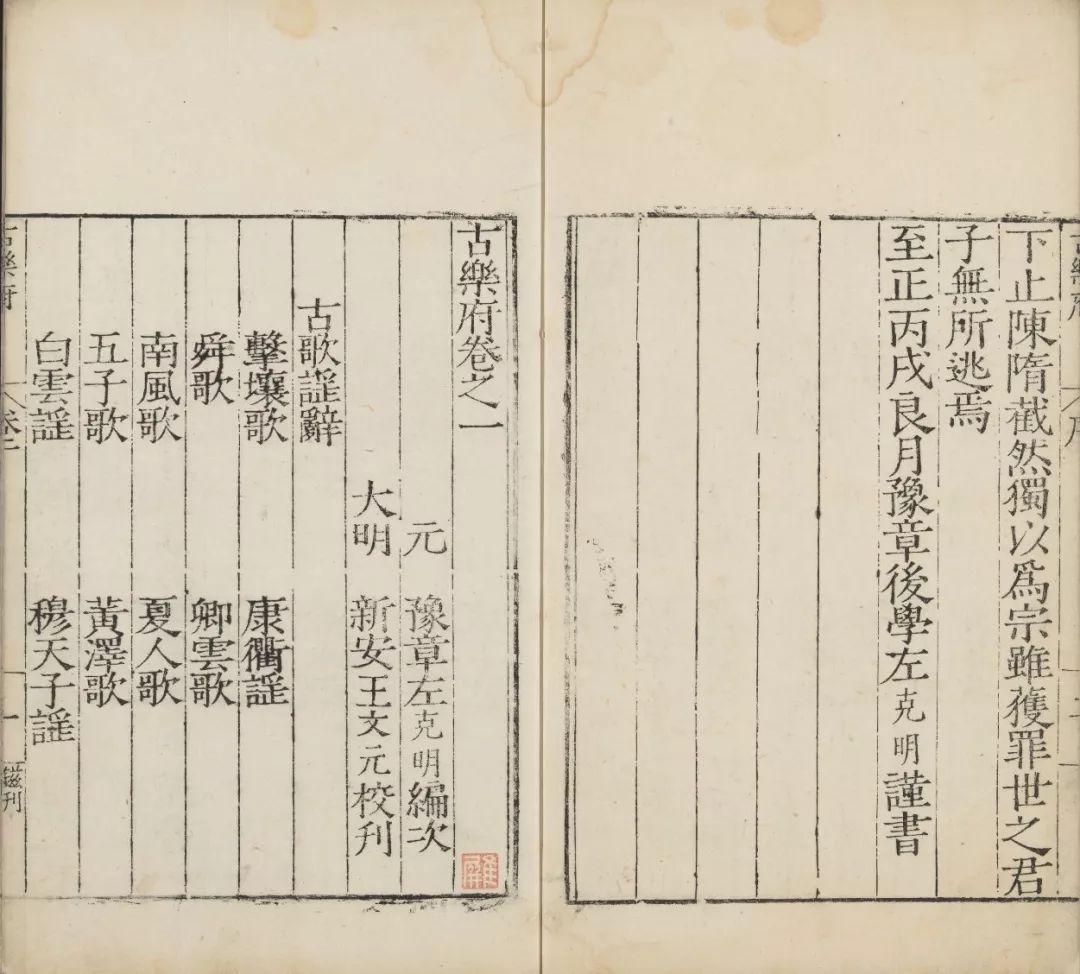 古樂府
下止陳隋截然獨以爲宗雖獲罪世之君
子無所逃焉
至正丙戌良月豫章後學左克明謹書
古樂府卷之一
元　豫章左克明編次
大明　新安王文元校刊
古歌謡辭
擊壤歌　康衢謡
舜歌　卿雲歌
南風歌　夏人歌
五子歌　黃澤歌
白雲謡　穆天子謡
古樂府　卷一　一　刊